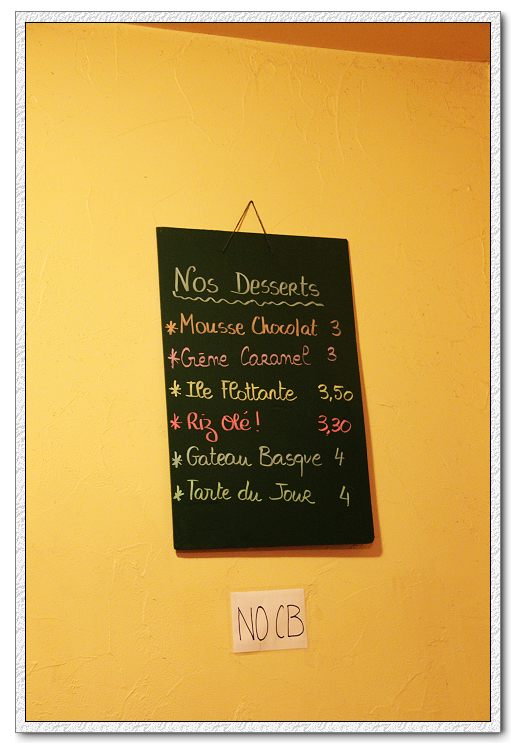 Nos Desserts
*Mousse Chocolat 3
*Crème Caramel 3
*Ile Flottante 3,50
*Riz Olé! 3,30
*Gateau Basque 4
*Tarte du Jour 4
NO CB